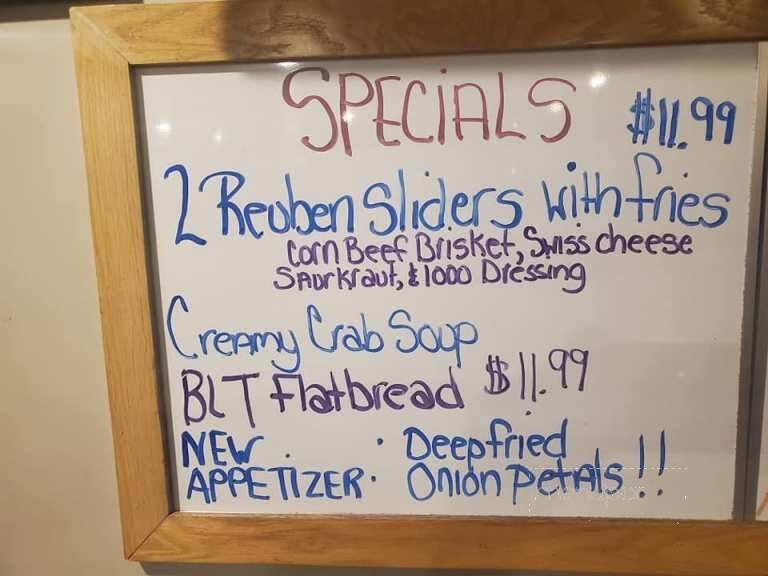 SPECIALS $11.99
2 Reuben Sliders with fries
Corn Beef Brisket, Swiss cheese
Saurkraut, & 1000 Dressing
Creamy Crab Soup
BLT flatbread $11.99
NEW · Deepfried
APPETIZER · Onion petals!!